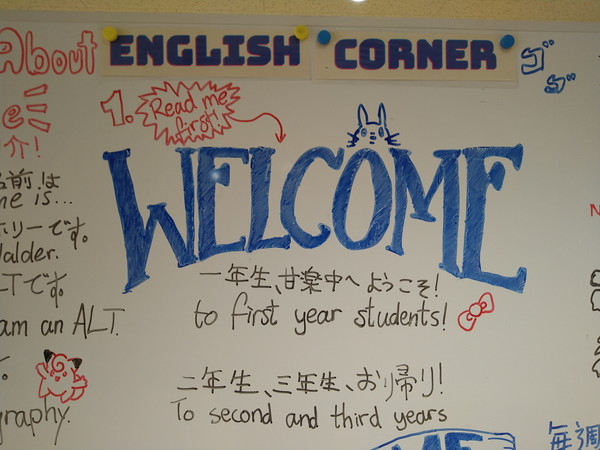 About
ENGLISH CORNER
1. Read me
first!
WELCOME
介!
名前は
is...
ホリーです。
Walder.
です。
am an ALT.
graphy.
一年生、甘楽中へようこそ!
to first year students!
二年生、三年生、お帰り!
To second and third years
毎週